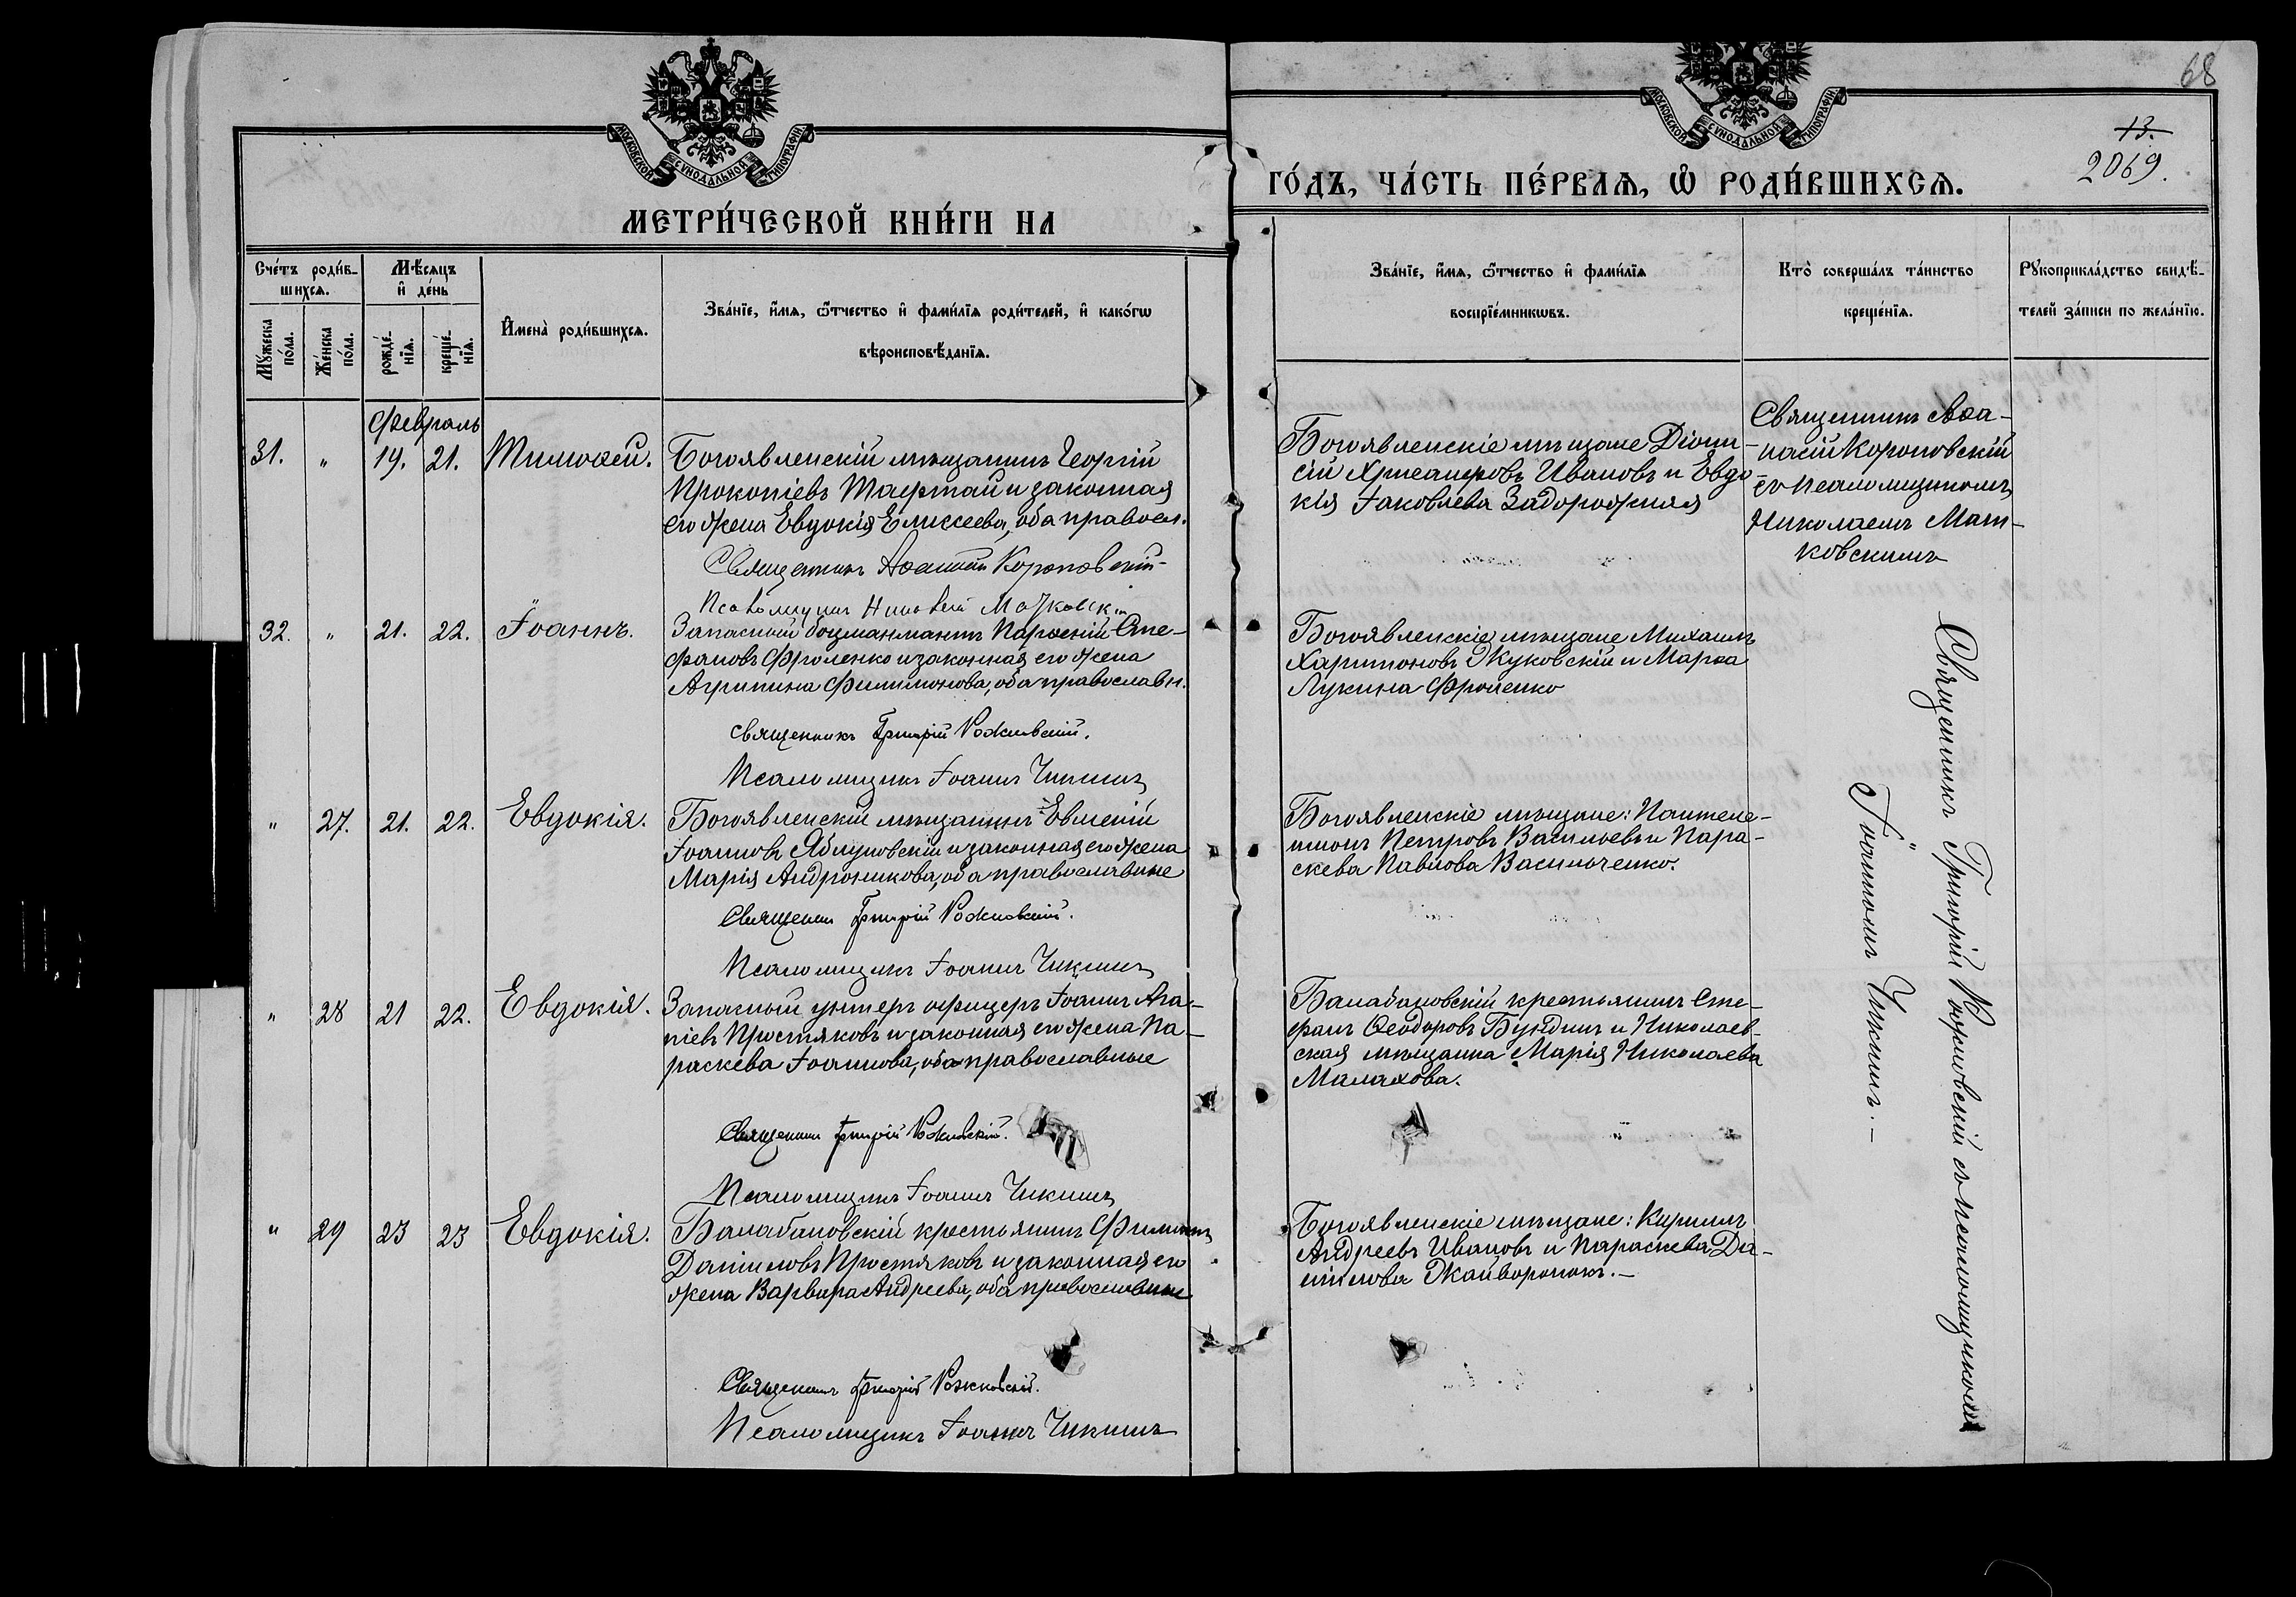 68
13.
2069.
МОСКОВСКОЙ СѴНОДАЛЬНОЙ ТИПОГРАФІИ
МОСКОВСКОЙ СѴНОДАЛЬНОЙ ТИПОГРАФІИ
МЕТРИ́ЧЕСКОЙ КНИ́ГИ НА
ГО́ДЪ, ЧА́СТЬ ПЕ́РВАѦ, Ѽ РОДИ́ВШИХСѦ.
Сче́тъ роди́в-
шихсѧ.
Мꙋ́жеска по́ла.
Же́нска по́ла.
Мѣ́сѧцъ и҆ де́нь
рожде́-нїѧ.
креще́-нїѧ.
И҆мена̀ роди́вшихсѧ.
Зва́нїе, и҆́мѧ, ѻ҆́тчество и҆ фами́лїѧ роди́телей, и҆ како́гѡ
вѣроисповѣ́данїѧ.
Зва́нїе, и҆́мѧ, ѻ҆́тчество и҆ фами́лїѧ
воспрїе́мникѡвъ.
Кто̀ совершáлъ та́инство
креще́нїѧ.
Рꙋкоприкла́дство свидѣ́-
телей за́писи по жела́нїю.
Февраль
31. " 19. 21. Тимоѳей.
Богоявленскій мѣщанинъ Георгій
Прокопіевъ Тафтай и законная
его жена Евдокія Елисеева, оба правосл.
Священникъ Аѳанасій Короповскій
Псаломщикъ Николай Матковск
Богоявленскіе мѣщане Діони-
сій Хрисанфовъ Ивановъ и Евдо-
кія Іаковлева Задорожная
Священникъ Аѳа-
насій Короповскій
съ псаломщикомъ
Николаемъ Мат-
ковскимъ
32. " 21. 22. Іоаннъ.
Запасный боцманматъ Парѳеній Сте-
фановъ Фроленко и законная его жена
Агрипина Филимонова, оба православн.
Священникъ Григорій Рожковскій.
Псаломщикъ Іоаннъ Чикинъ
Богоявленскіе мѣщане Михаилъ
Харитоновъ Жуковскій и Марѳа
Лукина Фроленко
" 27. 21. 22. Евдокія.
Богоявленскій мѣщанинъ Евменій
Іоанновъ Яблуновскій и законная его жена
Марія Андроникова, оба православные
Священникъ Григорій Рожковскій.
Псаломщикъ Іоаннъ Чикинъ
Богоявленскіе мѣщане: Пантеле-
имонъ Петровъ Васильевъ и Пара-
скева Павлова Васильченко.
" 28 21 22. Евдокія.
Запасный унтеръ офицеръ Іоаннъ Ага-
піевъ Простяковъ и законная его жена Па-
раскева Іоаннова, оба православные
Священникъ Григорій Рожковскій.
Псаломщикъ Іоаннъ Чикинъ
Балабановскій крестьянинъ Сте-
фанъ Ѳеодоровъ Бундинъ и Николаев-
ская мѣщанка Марія Николаева
Малахова.
" 29 23 23 Евдокія.
Балабановскій крестьянинъ Филиппъ
Даніиловъ Простяковъ и законная его
жена Варвара Андреева, оба православные
Священникъ Григорій Рожковскій.
Псаломщикъ Іоаннъ Чикинъ
Богоявленскіе мѣщане: Кириллъ
Андреевъ Ивановъ и Параскева Да-
ніилова Жайворонокъ.—
Священникъ Григорій Рожковскій съ псаломщикомъ
Іоанномъ Чикинъ.—